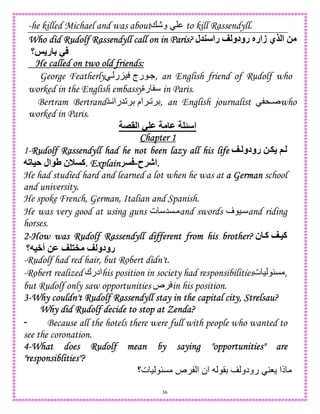 -he killed Michael and was about علي وشك to kill Rassendyll.
Who did Rudolf Rassendyll call on in Paris? من الذي زاره رودولف راسندل
في باريس؟
He called on two old friends:
George Featherly جـورج فيزرلـي, an English friend of Rudolf who
worked in the English embassy سفارة in Paris.
Bertram Bertrand برتـرام برتدرانـد, an English journalist صـحفي who
worked in Paris.
اسئلة عامة علي القصة
Chapter 1
1-Rudolf Rassendyll had he not been lazy all his life لـم يكـن رودولـف
كسلان طوال حياته. Explain اشرح-فسر.
He had studied hard and learned a lot when he was at a German school
and university.
He spoke French, German, Italian and Spanish.
He was very good at using guns مسدسات and swords سـيوف and riding
horses.
2-How was Rudolf Rassendyll different from his brother? كيـف كـان
رودولف مختلف عن أخيه؟
-Rudolf had red hair, but Robert didn't.
-Robert realized ادرك his position in society had responsibilities مسئوليات,
but Rudolf only saw opportunities فرص in his position.
3-Why couldn't Rudolf Rassendyll stay in the capital city, Strelsau?
Why did Rudolf decide to stop at Zenda?
- Because all the hotels there were full with people who wanted to
see the coronation.
4-What does Rudolf mean by saying "opportunities" are
"responsiblities"?
ماذا يعني رودولف بقوله ان الفرص مسئوليات؟
36